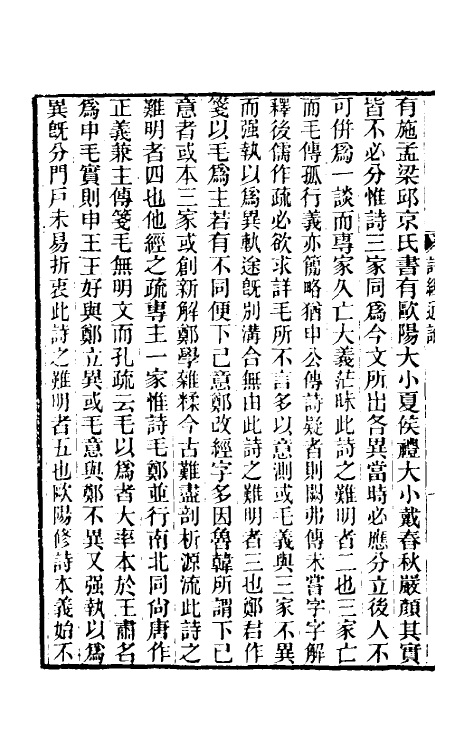 有施孟梁邱京氏書有歐陽大小夏侯禮大小戴春秋嚴顏其實
皆不必分惟詩三家同爲今文所出各異當時必應分立後人不
可併爲一談而專家久亡大義茫昧此詩之難明者二也三家亡
而毛傳孤行義亦簡略猶申公傳詩疑者則闕弗傳未嘗字字解
釋後儒作疏必欲求詳毛所不言多以意測或毛義與三家不異
而强執以爲異軌途旣別溝合無由此詩之難明者三也鄭君作
箋以毛爲主若有不同便下己意鄭改經字多因魯韓所謂下己
意者或本三家或創新解鄭學雜糅今古難盡剖析源流此詩之
難明者四也他經之疏專主一家惟詩毛鄭並行南北同尙唐作
正義兼主傳箋毛無明文而孔疏云毛以爲者大率本於王肅名
爲申毛實則申王王好與鄭立異或毛意與鄭不異又强執以爲
異旣分門戶未易折衷此詩之難明者五也歐陽修詩本義始不
詩經通論